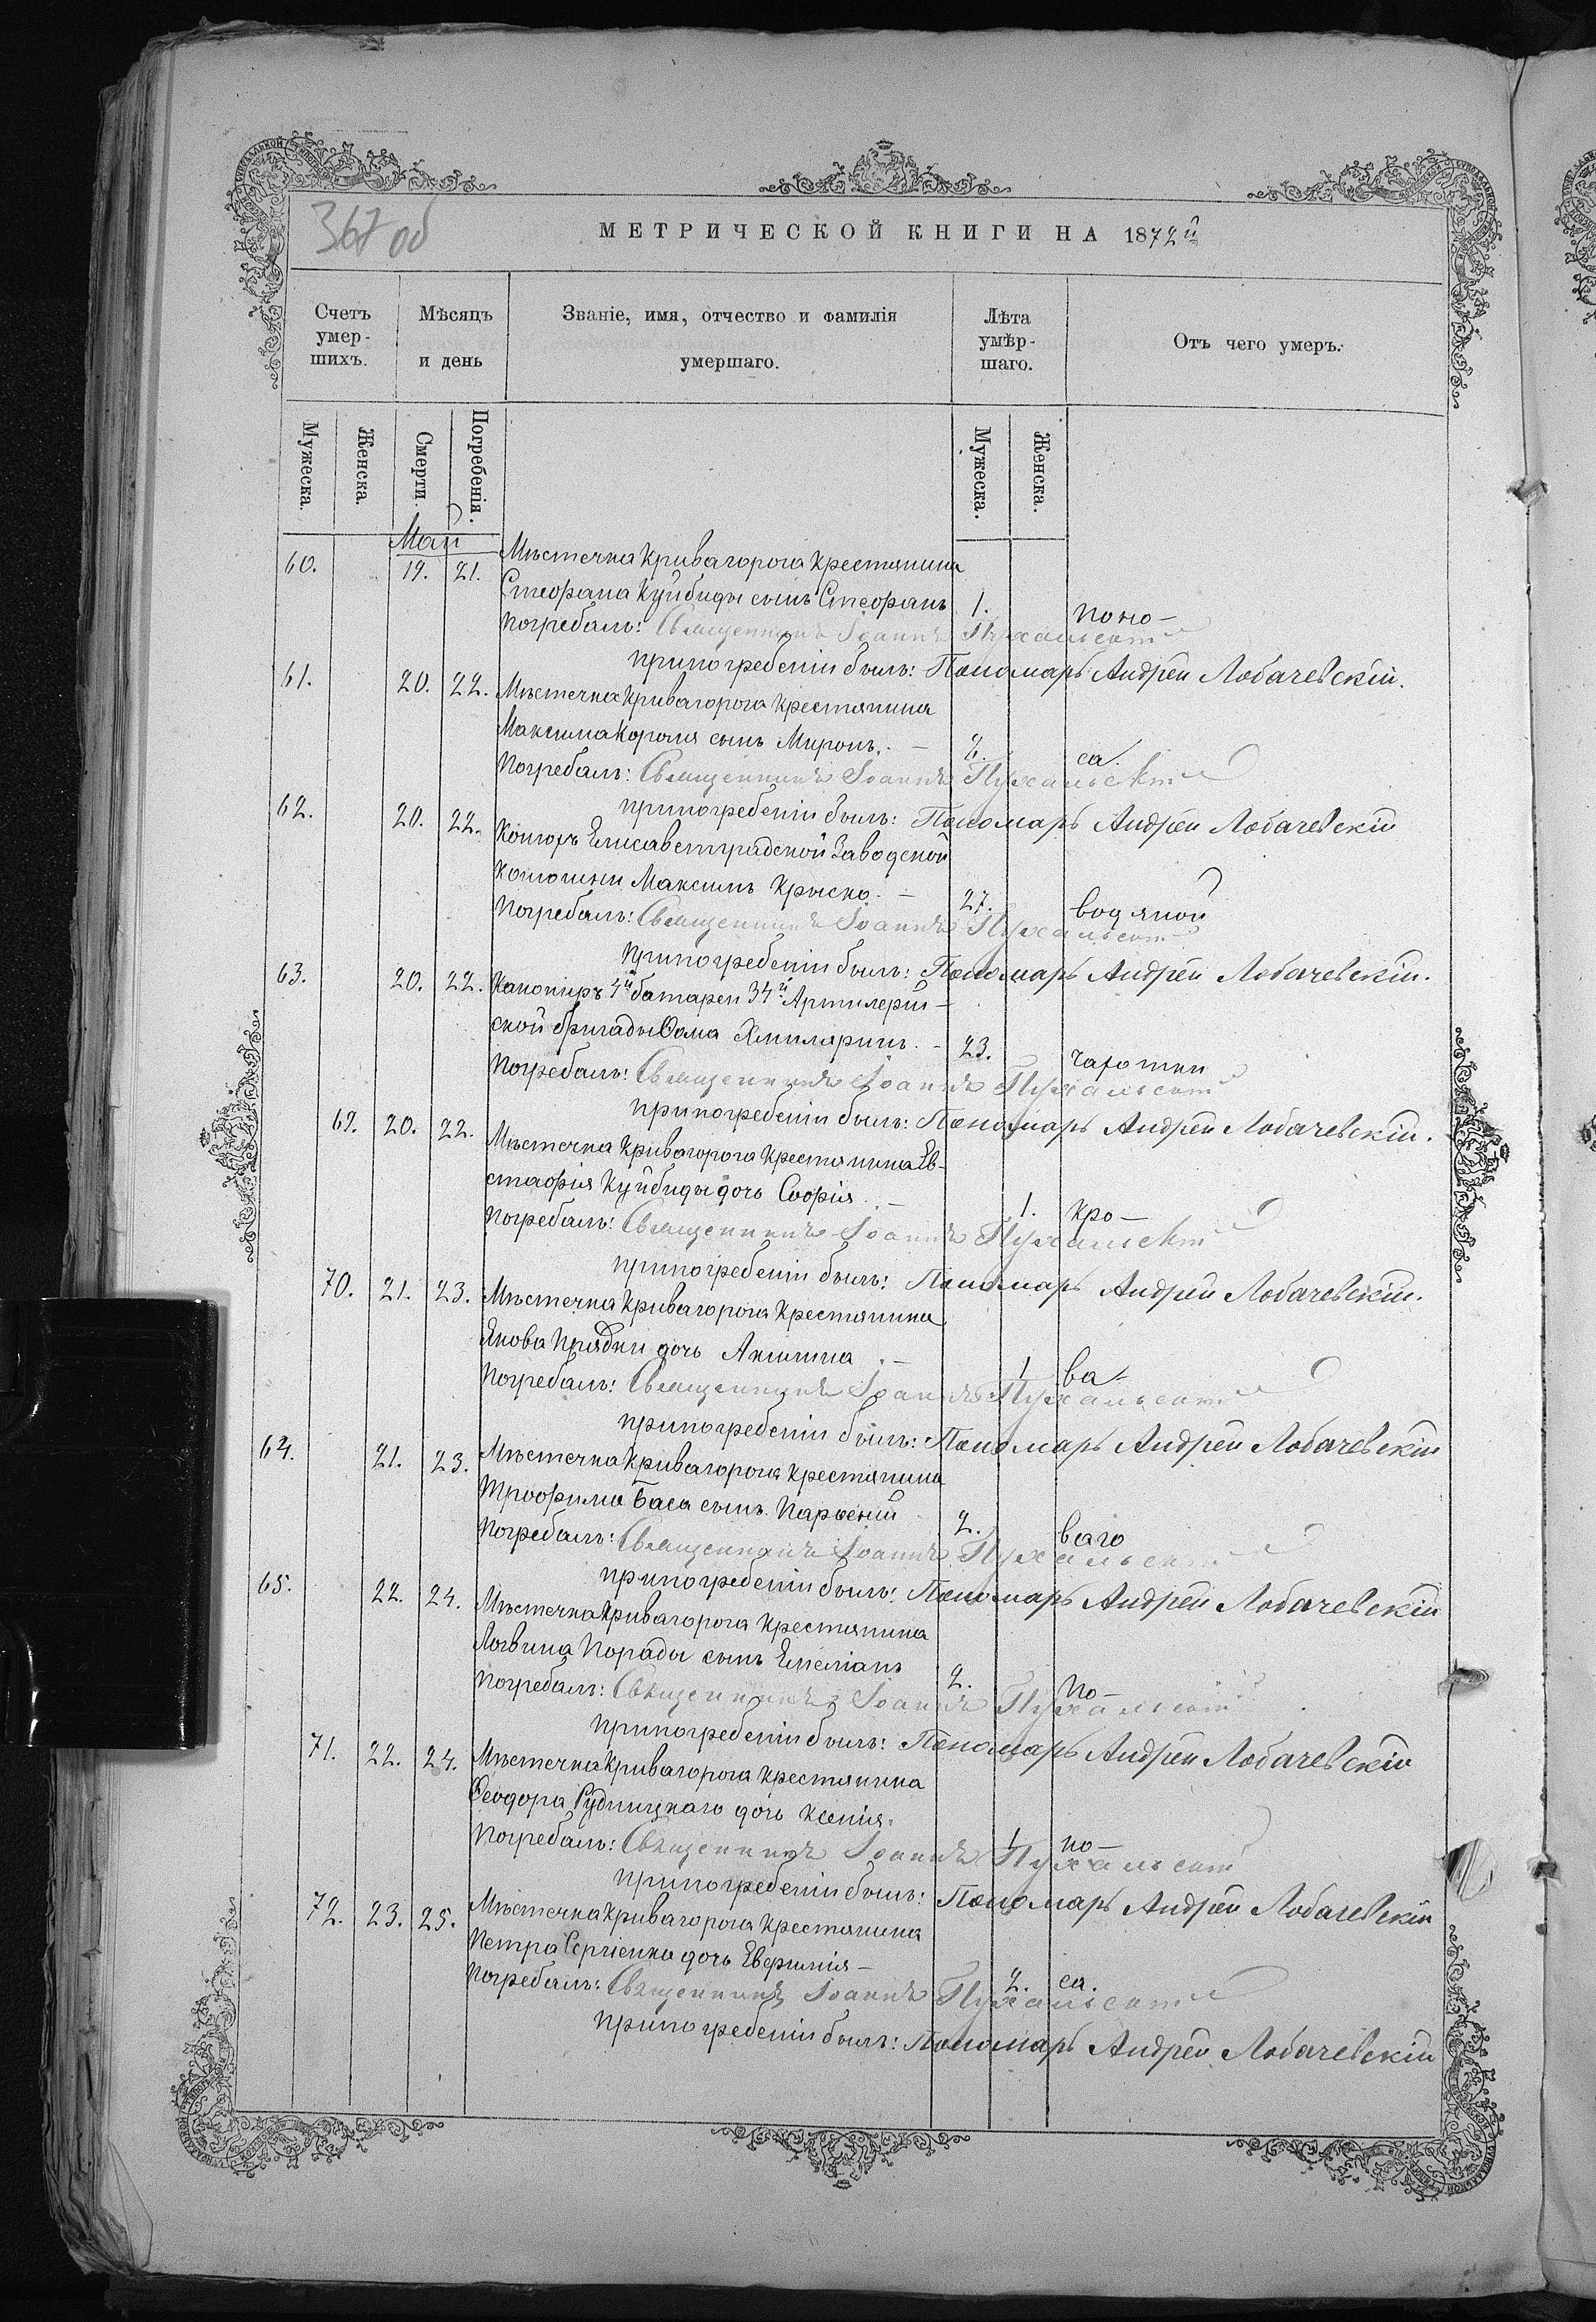 367 об
МЕТРИЧЕСКОЙ КНИГИ НА 1872й
Счетъ умер-шихъ.
Мѣсяцъ и день
Званіе, имя, отчество и фамилія умершаго.
Лѣта умѣр-шаго.
Отъ чего умеръ.
Мужеска.
Женска.
Смерти.
Погребенія.
Мужеска.
Женска.
Май
60. 19. 21. Мѣстечка Кривагорога Крестянина
Стефана Куйбиды сынъ Стефанъ 1. поно-
Погребалъ: Священникъ Іоаннъ
при погребеніи былъ: Пономарь Андрей Лобачевскій.
61. 20. 22. Мѣстечка Кривагорога Крестянина
Максима Короля сынъ Миронъ. - 2. са.
Погребалъ: Священникъ Іоаннъ
при погребеніи былъ: Пономарь Андрей Лобачевскій
62. 20. 22. Конюхъ Елисаветградской Заводской
Конюшни Максимъ Крыско. - 27. водяной
Погребалъ: Священникъ Іоаннъ
При погребеніи былъ: Пономарь Андрей Лобачевскій.
63. 20. 22. Канониръ 4й батареи 34й Артилерій-
ской бригады Фома - 23. чахотки
Погребалъ: Священникъ Іоаннъ
при погребеніи былъ: Пономарь Андрей Лобачевскій.
69. 20. 22. Мѣстечка Кривагорога Крестянина Ев-
стафія Куйбиды дочь Софія. - 1. кро-
Погребалъ: Священникъ Іоаннъ
при погребеніи былъ: Пономарь Андрей Лобачевскій.
70. 21. 23. Мѣстечка Кривагорога Крестянина
Якова Прядки дочь Акилина. - 1 ва-
Погребалъ: Священникъ Іоаннъ
при погребеніи былъ: Пономарь Андрей Лобачевскій
64. 21. 23. Мѣстечка Кривагорога Крестянина
Трофима Баса сынъ Парфеній 2. ваго
Погребалъ: Священникъ Іоаннъ
при погребеніи былъ: Пономарь Андрей Лобачевскій
65. 22. 24. Мѣстечка Кривагорога Крестянина
Логвина Порады сынъ Емеліанъ 2. по-
Погребалъ: Священникъ Іоаннъ
при погребеніи былъ: Пономарь Андрей Лобачевскій
71. 22. 24. Мѣстечка Кривагорога Крестянина
Феодора Рудницкаго дочь Ксенія. 1 но-
Погребалъ: Священникъ Іоаннъ
при погребеніи былъ: Пономарь Андрей Лобачевскій
72. 23. 25. Мѣстечка Кривагорога Крестянина
Петра Сергіенка дочь Евфимія - 2. са.
Погребалъ: Священникъ Іоаннъ
при погребеніи былъ: Пономарь Андрей Лобачевскій